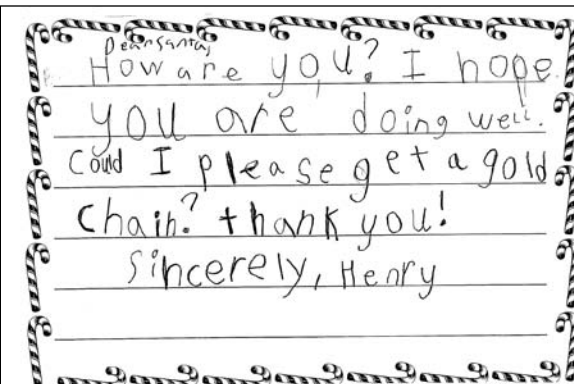 Dear Santa,
How are you? I hope
you are doing well.
Could I please get a gold
Chain? thank you!
Sincerely, Henry